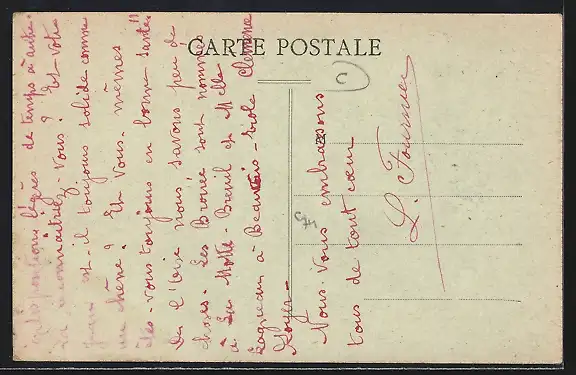 CARTE POSTALE
de temps à autre.
reconnaîtriez-vous? Est-votre
est-il toujours solide comme
un chêne? Et vous-mêmes
êtes-vous toujours en bonne santé?
De l'Oise nous savons peu de
choses. Les sont nommés
à La Motte-Breuil et Melle
à Beauvais-école Clémence
Noyer-
Nous vous embrassons
tous de tout cœur
L. Fournier